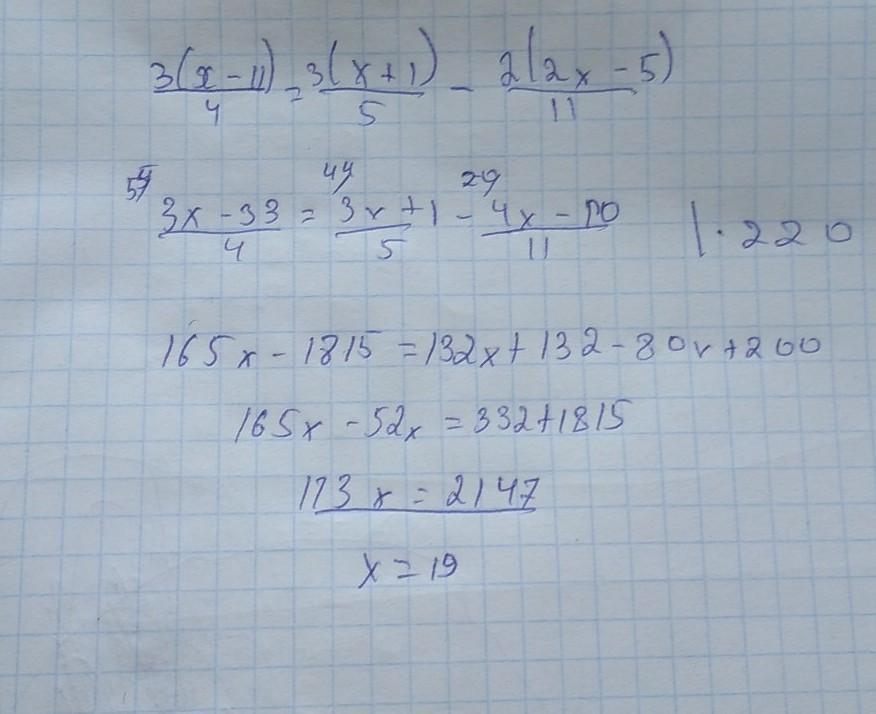 3(x-11)/4 = 3(x+1)/5 - 2(2x-5)/11
3x-33/4 = 3x+1/5 - 4x-10/11 |·220
165x - 1815 = 132x + 132 - 80x + 200
165x - 52x = 332 + 1815
113x = 2147
x = 19